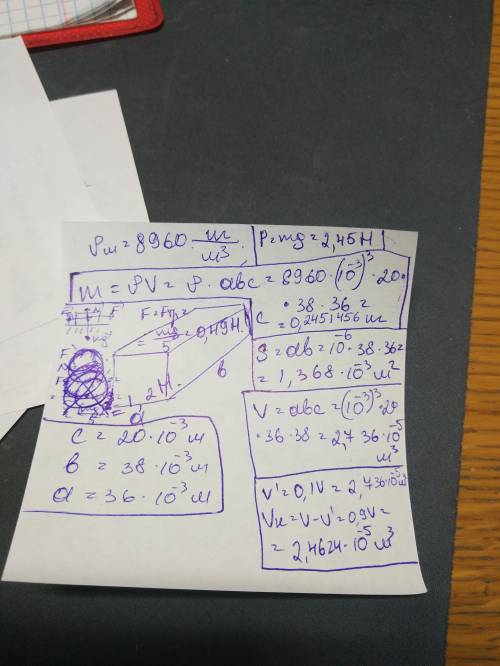 ρм = 8960 кг/м³
P = mg = 2,45 H
m = ρV = ρ · abc = 8960 · (10⁻³)³ · 20 ·
· 38 · 36 =
= 0,2451456 кг
F = Fтр =
= mg/5 = 0,49 H.
c
b
a
S = ab = 10⁻⁶ · 38 · 36 =
= 1,368 · 10⁻³ м²
V = abc = (10⁻³)³ · 20
· 36 · 38 = 2,736 · 10⁻⁵
м³
c = 20 · 10⁻³ м
b = 38 · 10⁻³ м
a = 36 · 10⁻³ м
V' = 0,1V = 2,736·10⁻⁵ м³
Vк = V - V' = 0,9V =
= 2,4624 · 10⁻⁵ м³